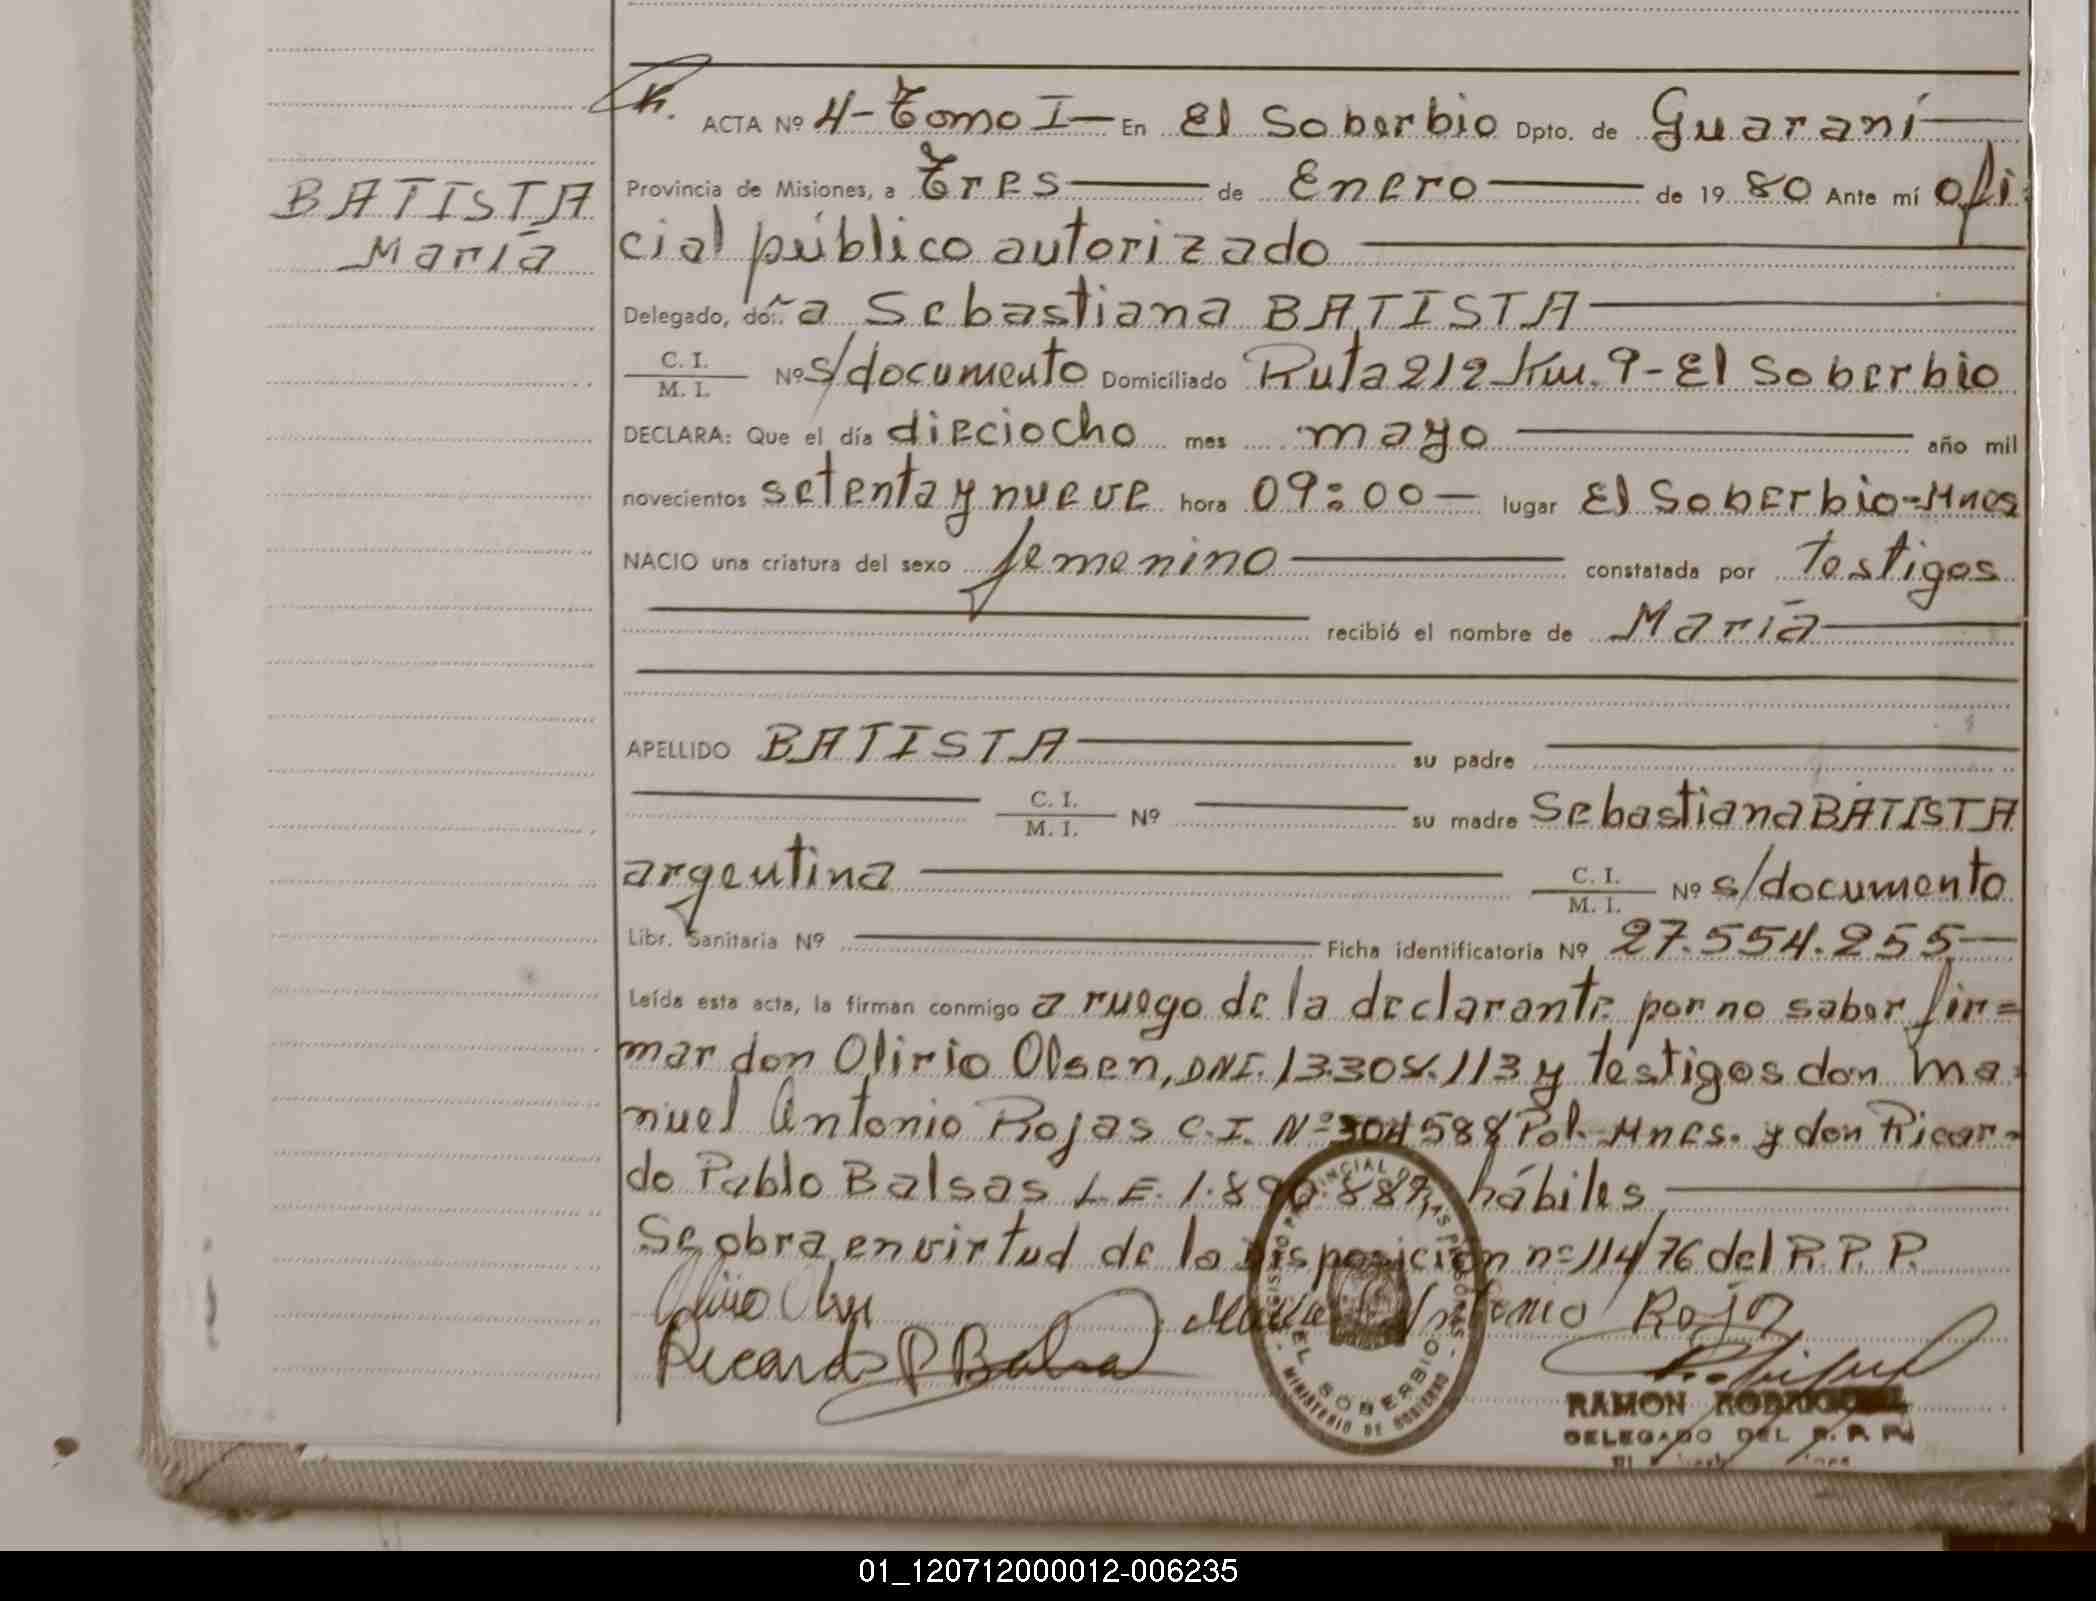 ACTA Nº 4 - Tomo I — En El Soberbio Dpto. de Guaraní
BATISTA
María
Provincia de Misiones, a Tres de Enero de 19 80 Ante mí ofi
cial público autorizado
Delegado, doña Sebastiana BATISTA
C. I.
M. I. Nº s/documento Domiciliado Ruta 212 Km. 9 - El Soberbio
DECLARA: Que el día dieciocho mes mayo año mil
novecientos setenta y nueve hora 09:00 — lugar El Soberbio=Mnes
NACIO una criatura del sexo femenino constatada por testigos
recibió el nombre de María
APELLIDO BATISTA su padre
C. I.
M. I. Nº su madre Sebastiana BATISTA
argentina C. I.
M. I. Nº s/documento
Libr. Sanitaria Nº Ficha identificatoria Nº 27.554.255
Leída esta acta, la firman conmigo a ruego de la declarante por no saber fir=
mar don Olirio Olsen, DNI. y testigos don Ma=
nuel Antonio Rojas C.I. Nº Pol. Mnes. y don Ricar=
do Pablo Balsas L.E. hábiles
Se obra en virtud de la Disposición nº 114/76 del R.P.P.
Olirio Olsen Manuel Antonio Rojas
Ricardo P Balsa
RAMON RODRIGUEZ
DELEGADO DEL R. P. P.
EL SOBERBIO
MINISTERIO DE GOBIERNO
01_120712000012-006235